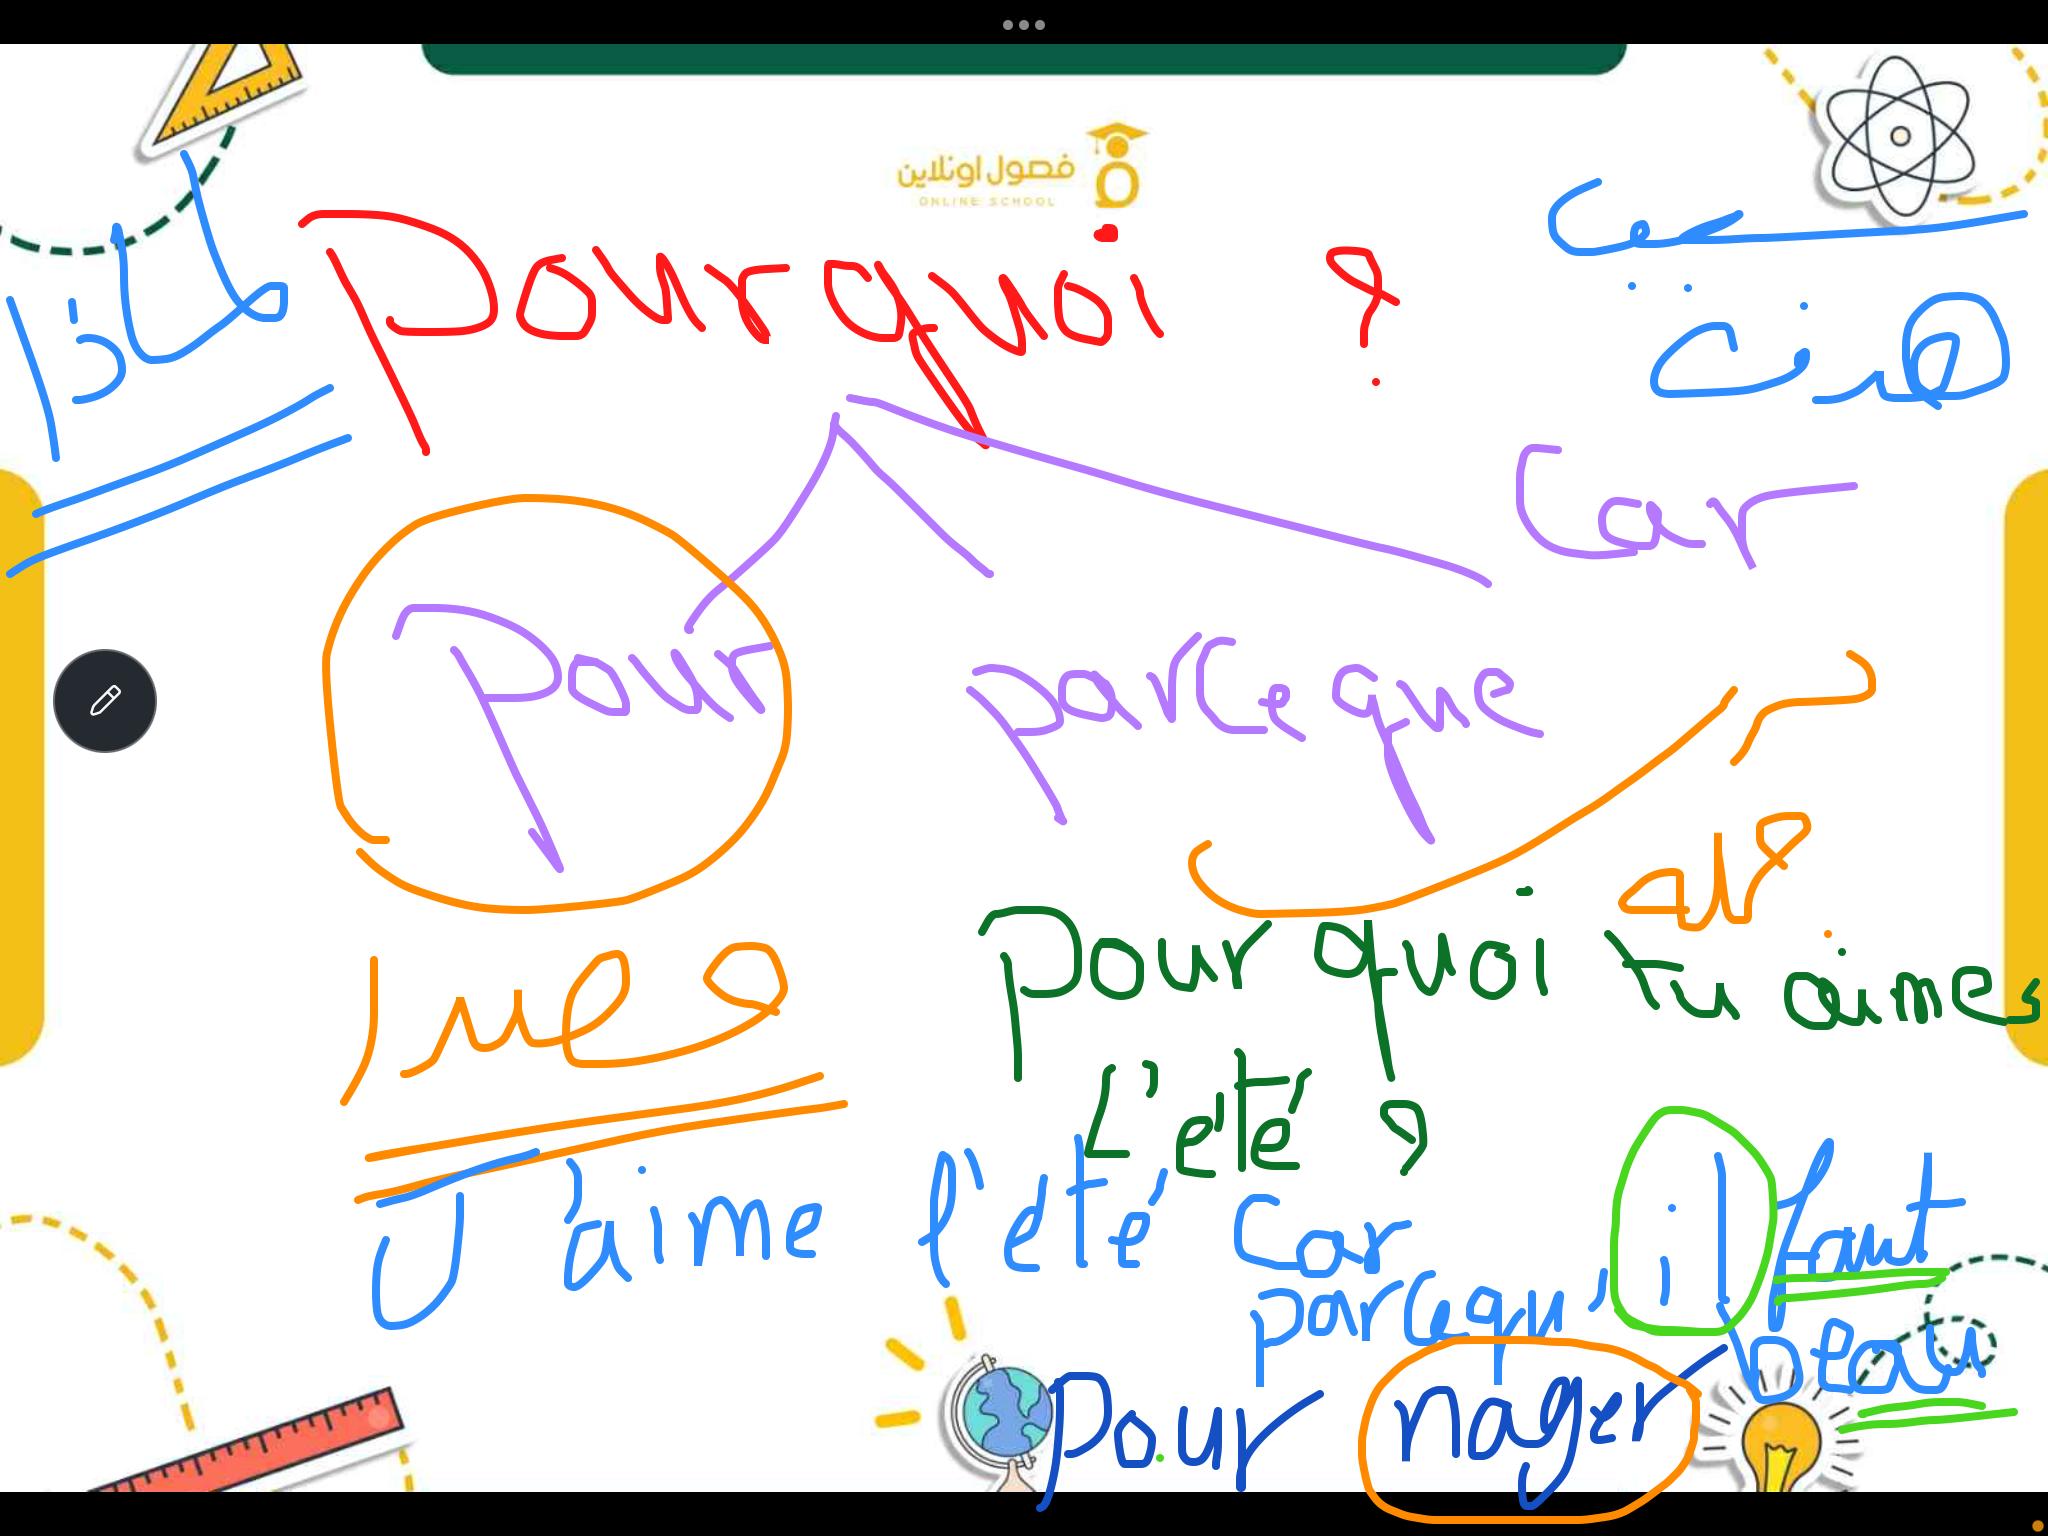 فصول اونلاين
ONLINE SCHOOL
لماذا
Pourquoi ?
سبب
هدف
Car
Pour
parceque
مصدر
Pourquoi tu aimes
L'été ?
J'aime l'été Car il faut
parcequ' beau
Pour nager